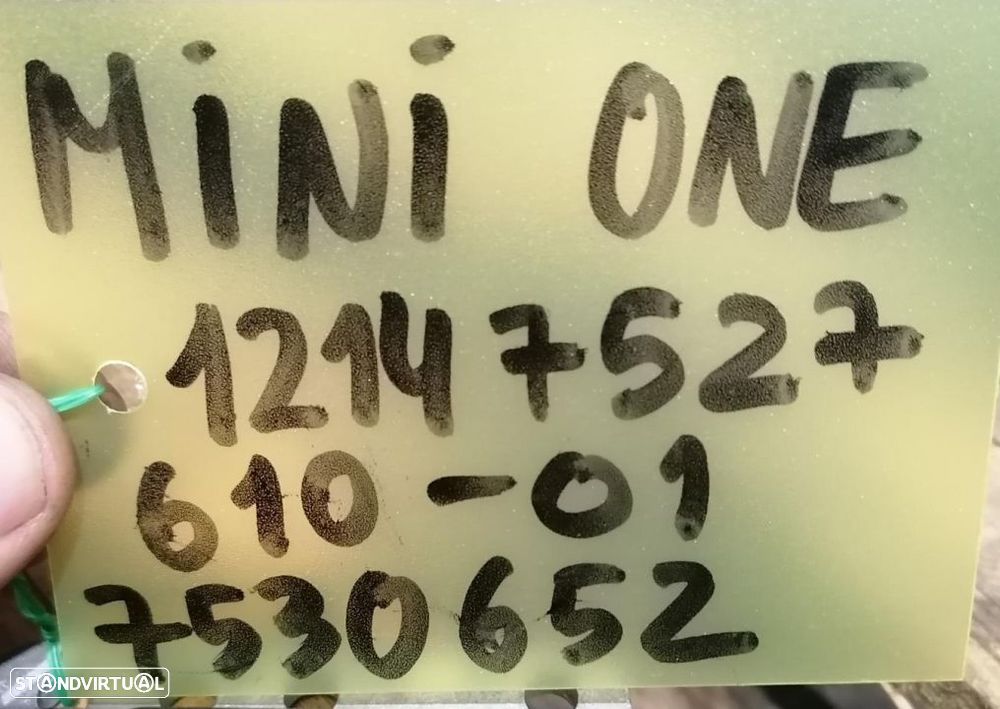 MiNi ONE
12147527
610-01
7530652
STANDVIRTUAL